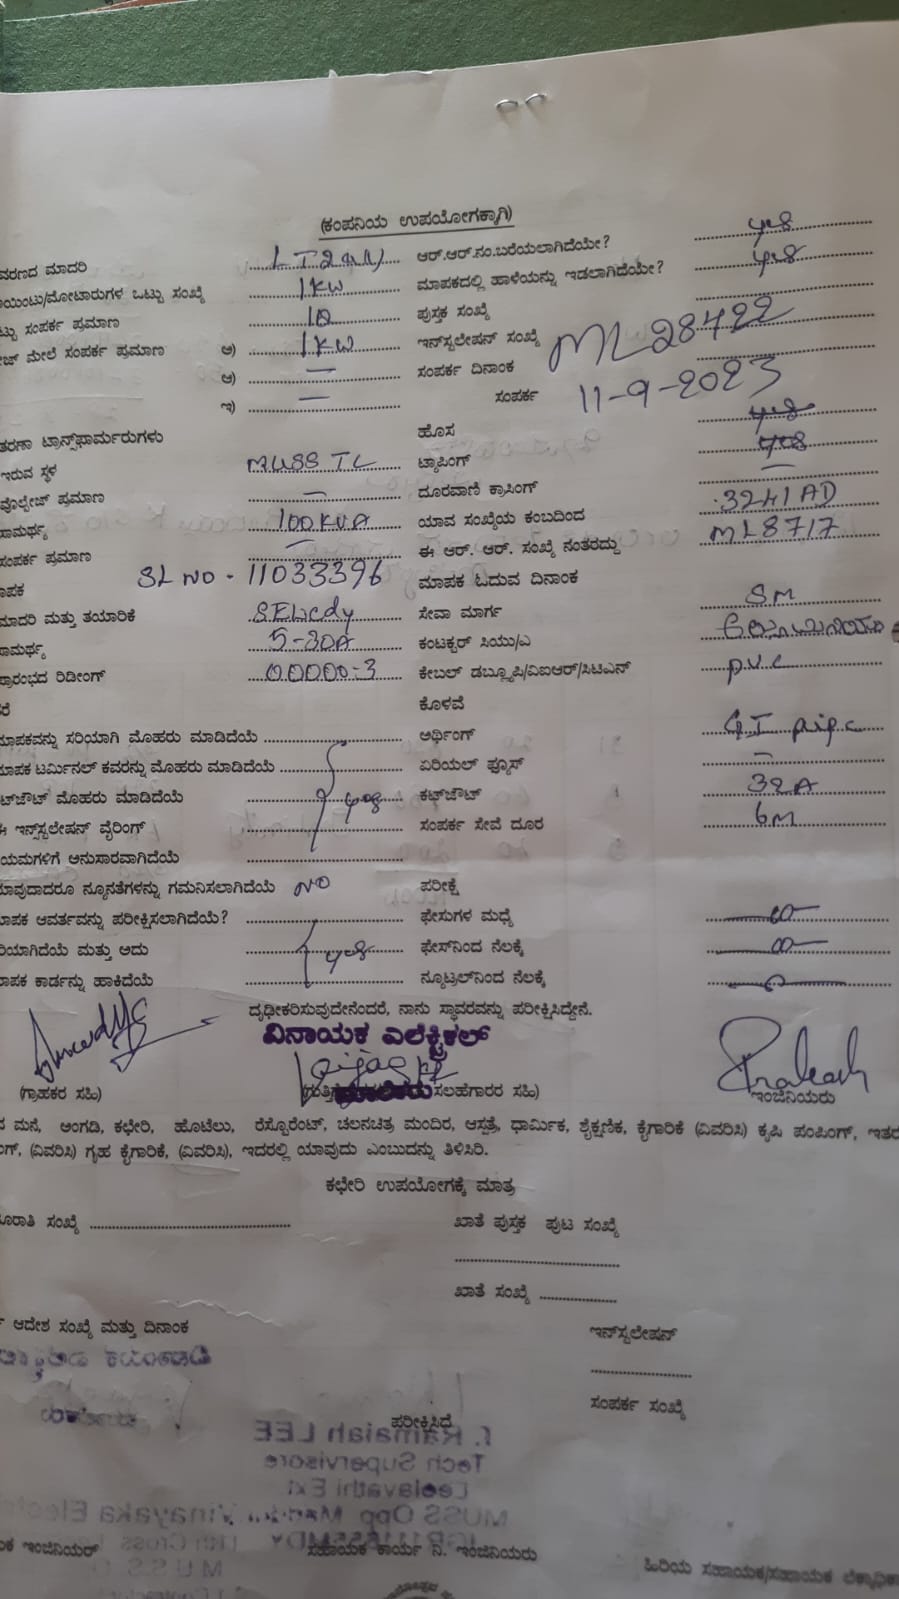 (ಕಂಪನಿಯ ಉಪಯೋಗಕ್ಕಾಗಿ)
ವರಣದ ಮಾದರಿ LT2a(ii) ಆರ್.ಆರ್.ನಂ.ಬರೆಯಲಾಗಿದೆಯೇ? yes
ಾಯಿಂಟು/ಮೋಟಾರುಗಳ ಒಟ್ಟು ಸಂಖ್ಯೆ 1KW ಮಾಪಕದಲ್ಲಿ ಹಾಳೆಯನ್ನು ಇಡಲಾಗಿದೆಯೇ? yes
ಟ್ಟು ಸಂಪರ್ಕ ಪ್ರಮಾಣ ಪುಸ್ತಕ ಸಂಖ್ಯೆ
ೇಜ್ ಮೇಲೆ ಸಂಪರ್ಕ ಪ್ರಮಾಣ ಅ) 1KW ಇನ್‌ಸ್ಟಲೇಷನ್ ಸಂಖ್ಯೆ ML28422
ಆ) — ಸಂಪರ್ಕ ದಿನಾಂಕ 11-9-2023
ಇ) — ಸಂಪರ್ಕ
ತರಣಾ ಟ್ರಾನ್ಸ್‌ಫಾರ್ಮರುಗಳು ಹೊಸ yes
ಇರುವ ಸ್ಥಳ MUSS TC ಟ್ಯಾಪಿಂಗ್ yes
ವೊಲ್ಟೇಜ್ ಪ್ರಮಾಣ — ದೂರವಾಣಿ ಕ್ರಾಸಿಂಗ್ —
ಸಾಮರ್ಥ್ಯ 100KVA ಯಾವ ಸಂಖ್ಯೆಯ ಕಂಬದಿಂದ 3241AD
ಸಂಪರ್ಕ ಪ್ರಮಾಣ — ಈ ಆರ್. ಆರ್. ಸಂಖ್ಯೆ ನಂತರದ್ದು ML8717
ಾಪಕ SL NO - 11033396 ಮಾಪಕ ಓದುವ ದಿನಾಂಕ
ಮಾದರಿ ಮತ್ತು ತಯಾರಿಕೆ ಸೇವಾ ಮಾರ್ಗ SM
ಸಾಮರ್ಥ್ಯ 5-30A ಕಂಟಕ್ಟರ್ ಸಿಯು/ಎ
ಪ್ರಾರಂಭದ ರಿಡೀಂಗ್ 00000.3 ಕೇಬಲ್ ಡಬ್ಲ್ಯೂಪಿ/ಐಐಆರ್/ಸಿಟಿಎಸ್ P.V.C
ರೆ ಕೊಳವೆ
ಾಪಕವನ್ನು ಸರಿಯಾಗಿ ಮೊಹರು ಮಾಡಿದೆಯೆ ಅರ್ಥಿಂಗ್ GI pipe
ಾಪಕ ಟರ್ಮಿನಲ್ ಕವರನ್ನು ಮೊಹರು ಮಾಡಿದೆಯೆ ಏರಿಯಲ್ ಫ್ಯೂಸ್ —
ಟ್‌ಔಟ್ ಮೊಹರು ಮಾಡಿದೆಯೆ yes ಕಟ್‌ಔಟ್ 32A
ಈ ಇನ್ಸ್‌ಸ್ಟಲೇಷನ್ ವೈರಿಂಗ್ ಸಂಪರ್ಕ ಸೇವೆ ದೂರ 6M
ಯಮಗಳಿಗೆ ಅನುಸಾರವಾಗಿದೆಯೆ
ಾವುದಾದರೂ ನ್ಯೂನತೆಗಳನ್ನು ಗಮನಿಸಲಾಗಿದೆಯೆ NO ಪರೀಕ್ಷೆ
ಾಪಕ ಆವರ್ತವನ್ನು ಪರೀಕ್ಷಿಸಲಾಗಿದೆಯೆ? ಫೇಸುಗಳ ಮಧ್ಯೆ
ರಿಯಾಗಿದೆಯೆ ಮತ್ತು ಅದು yes ಫೇಸ್‌ನಿಂದ ನೆಲಕ್ಕೆ
ಾಪಕ ಕಾರ್ಡನ್ನು ಹಾಕಿದೆಯೆ ನ್ಯೂಟ್ರಲ್‌ನಿಂದ ನೆಲಕ್ಕೆ
ದೃಢೀಕರಿಸುವುದೇನೆಂದರೆ, ನಾನು ಸ್ಥಾವರವನ್ನು ಪರೀಕ್ಷಿಸಿದ್ದೇನೆ.
ವಿನಾಯಕ ಎಲೆಕ್ಟ್ರಿಕಲ್
Prakash
(ಗ್ರಾಹಕರ ಸಹಿ) ಮಾಲೀಕರು ಸಲಹೆಗಾರರ ಸಹಿ) ಇಂಜಿನಿಯರು
ದ ಮನೆ, ಅಂಗಡಿ, ಕಛೇರಿ, ಹೊಟೆಲು, ರೆಸ್ಟೊರೆಂಟ್, ಚಲನಚಿತ್ರ ಮಂದಿರ, ಆಸ್ಪತ್ರೆ, ಧಾರ್ಮಿಕ, ಶೈಕ್ಷಣಿಕ, ಕೈಗಾರಿಕೆ (ವಿವರಿಸಿ) ಕೃಷಿ ಪಂಪಿಂಗ್, ಇತರ
ಂಗ್, (ವಿವರಿಸಿ) ಗೃಹ ಕೈಗಾರಿಕೆ, (ವಿವರಿಸಿ), ಇದರಲ್ಲಿ ಯಾವುದು ಎಂಬುದನ್ನು ತಿಳಿಸಿರಿ.
ಕಛೇರಿ ಉಪಯೋಗಕ್ಕೆ ಮಾತ್ರ
ೂರಾತಿ ಸಂಖ್ಯೆ ಖಾತೆ ಪುಸ್ತಕ ಪುಟ ಸಂಖ್ಯೆ
ಖಾತೆ ಸಂಖ್ಯೆ
ಆದೇಶ ಸಂಖ್ಯೆ ಮತ್ತು ದಿನಾಂಕ ಇನ್‌ಸ್ಟಲೇಷನ್
ಸಂಪರ್ಕ ಸಂಖ್ಯೆ
ಪರೀಕ್ಷಿಸಿದೆ
ಕ ಇಂಜಿನಿಯರ್ ಸಹಾಯಕ ಕಾರ್ಯ ನಿ. ಇಂಜಿನಿಯರು ಹಿರಿಯ ಸಹಾಯಕ/ಸಹಾಯಕ ಲೆಕ್ಕಾಧಿಕಾ